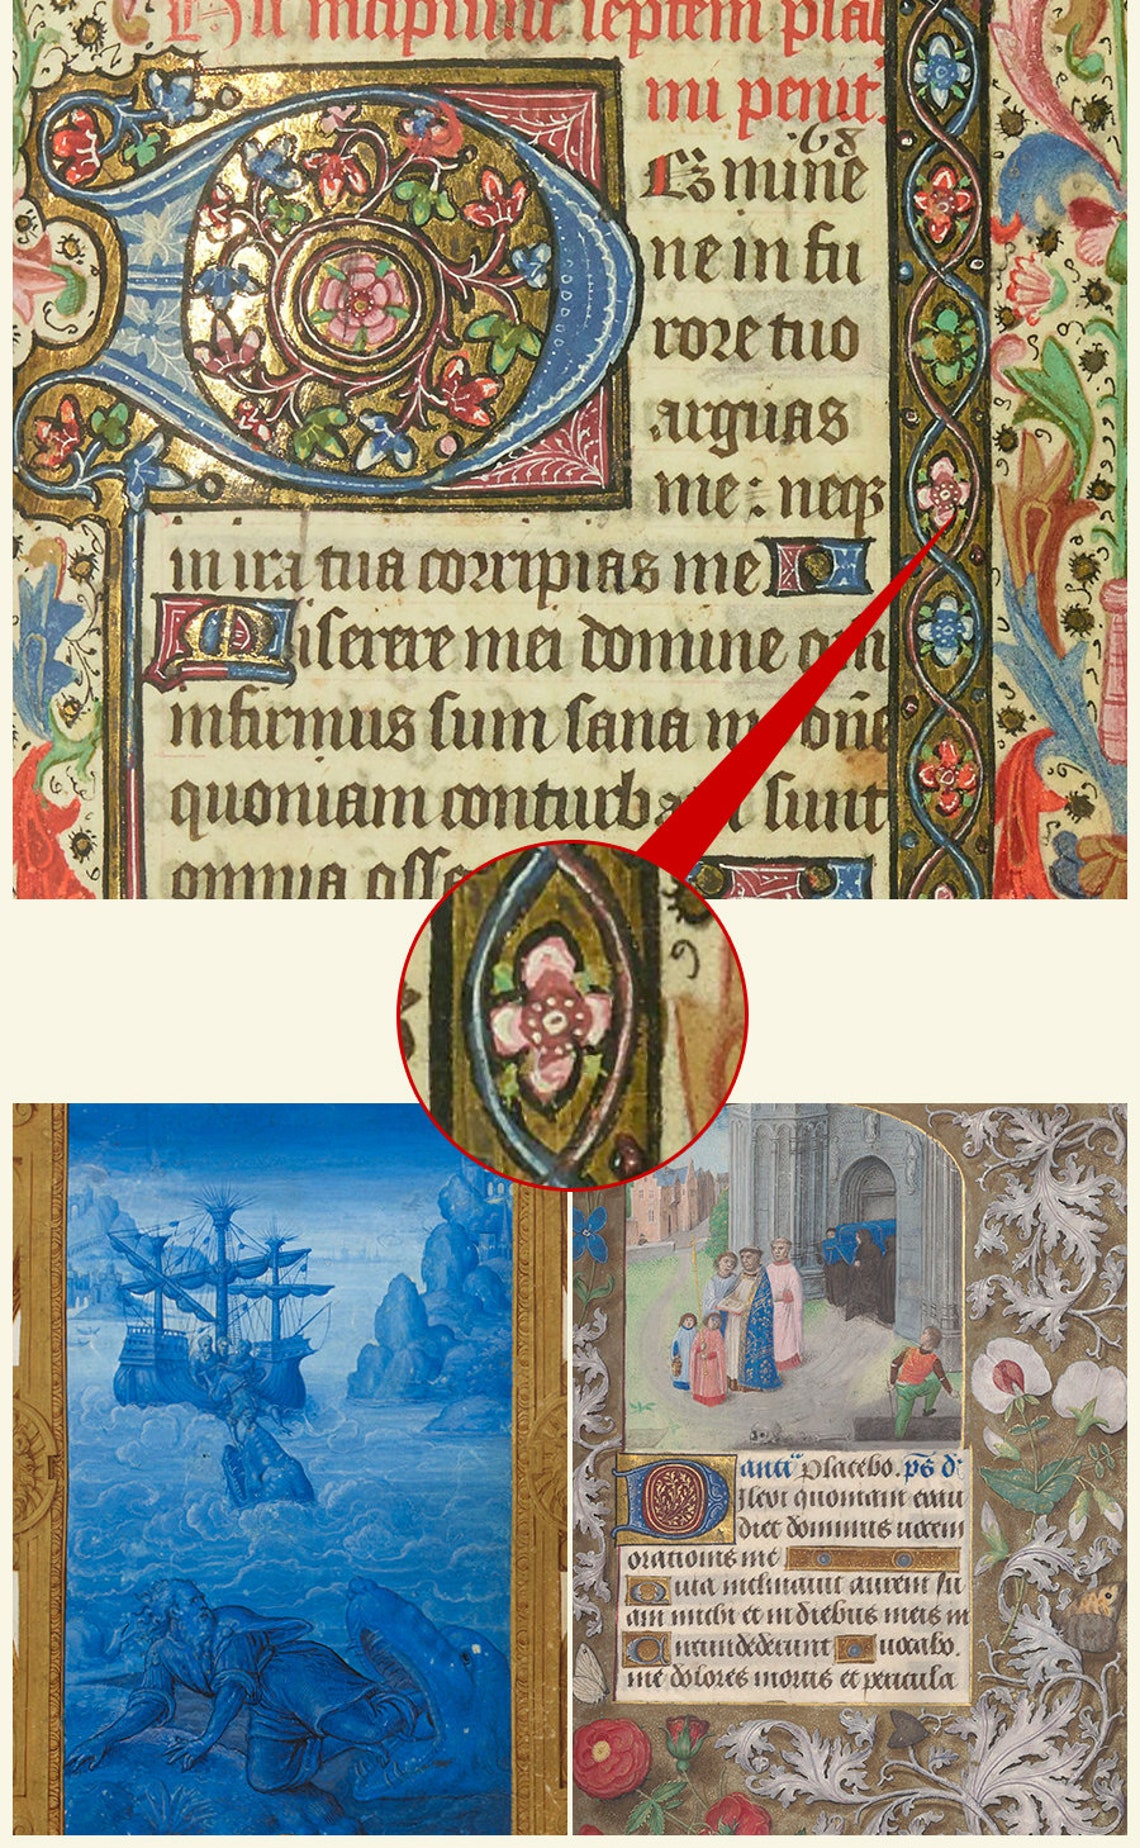 incipiunt septem psal
mi penit
68
Domine
ne in fu
rore tuo
arguas
me : neqȝ
in ira tua corripias me
Miserere mei domine qm
infirmus sum sana m dñe
quoniam conturba sunt
omnia osse
anti Placebo. ps d
Dilexi quoniam exau
diet dominus uocem
orationis me
Quia inclinauit aurem su
am michi et in diebus meis in
uocabo.
me dolores mortis et pericula